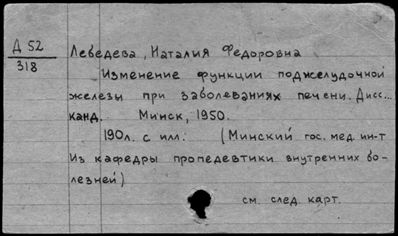 Д 52
318
Лебедева, Наталия Федоровна
Изменение функции поджелудочной
железы при заболеваниях печени. Дисс...
канд. Минск, 1950.
190л. с илл. (Минский гос. мед. ин-т
Из кафедры пропедевтики внутренних бо-
лезней)
см. след. карт.